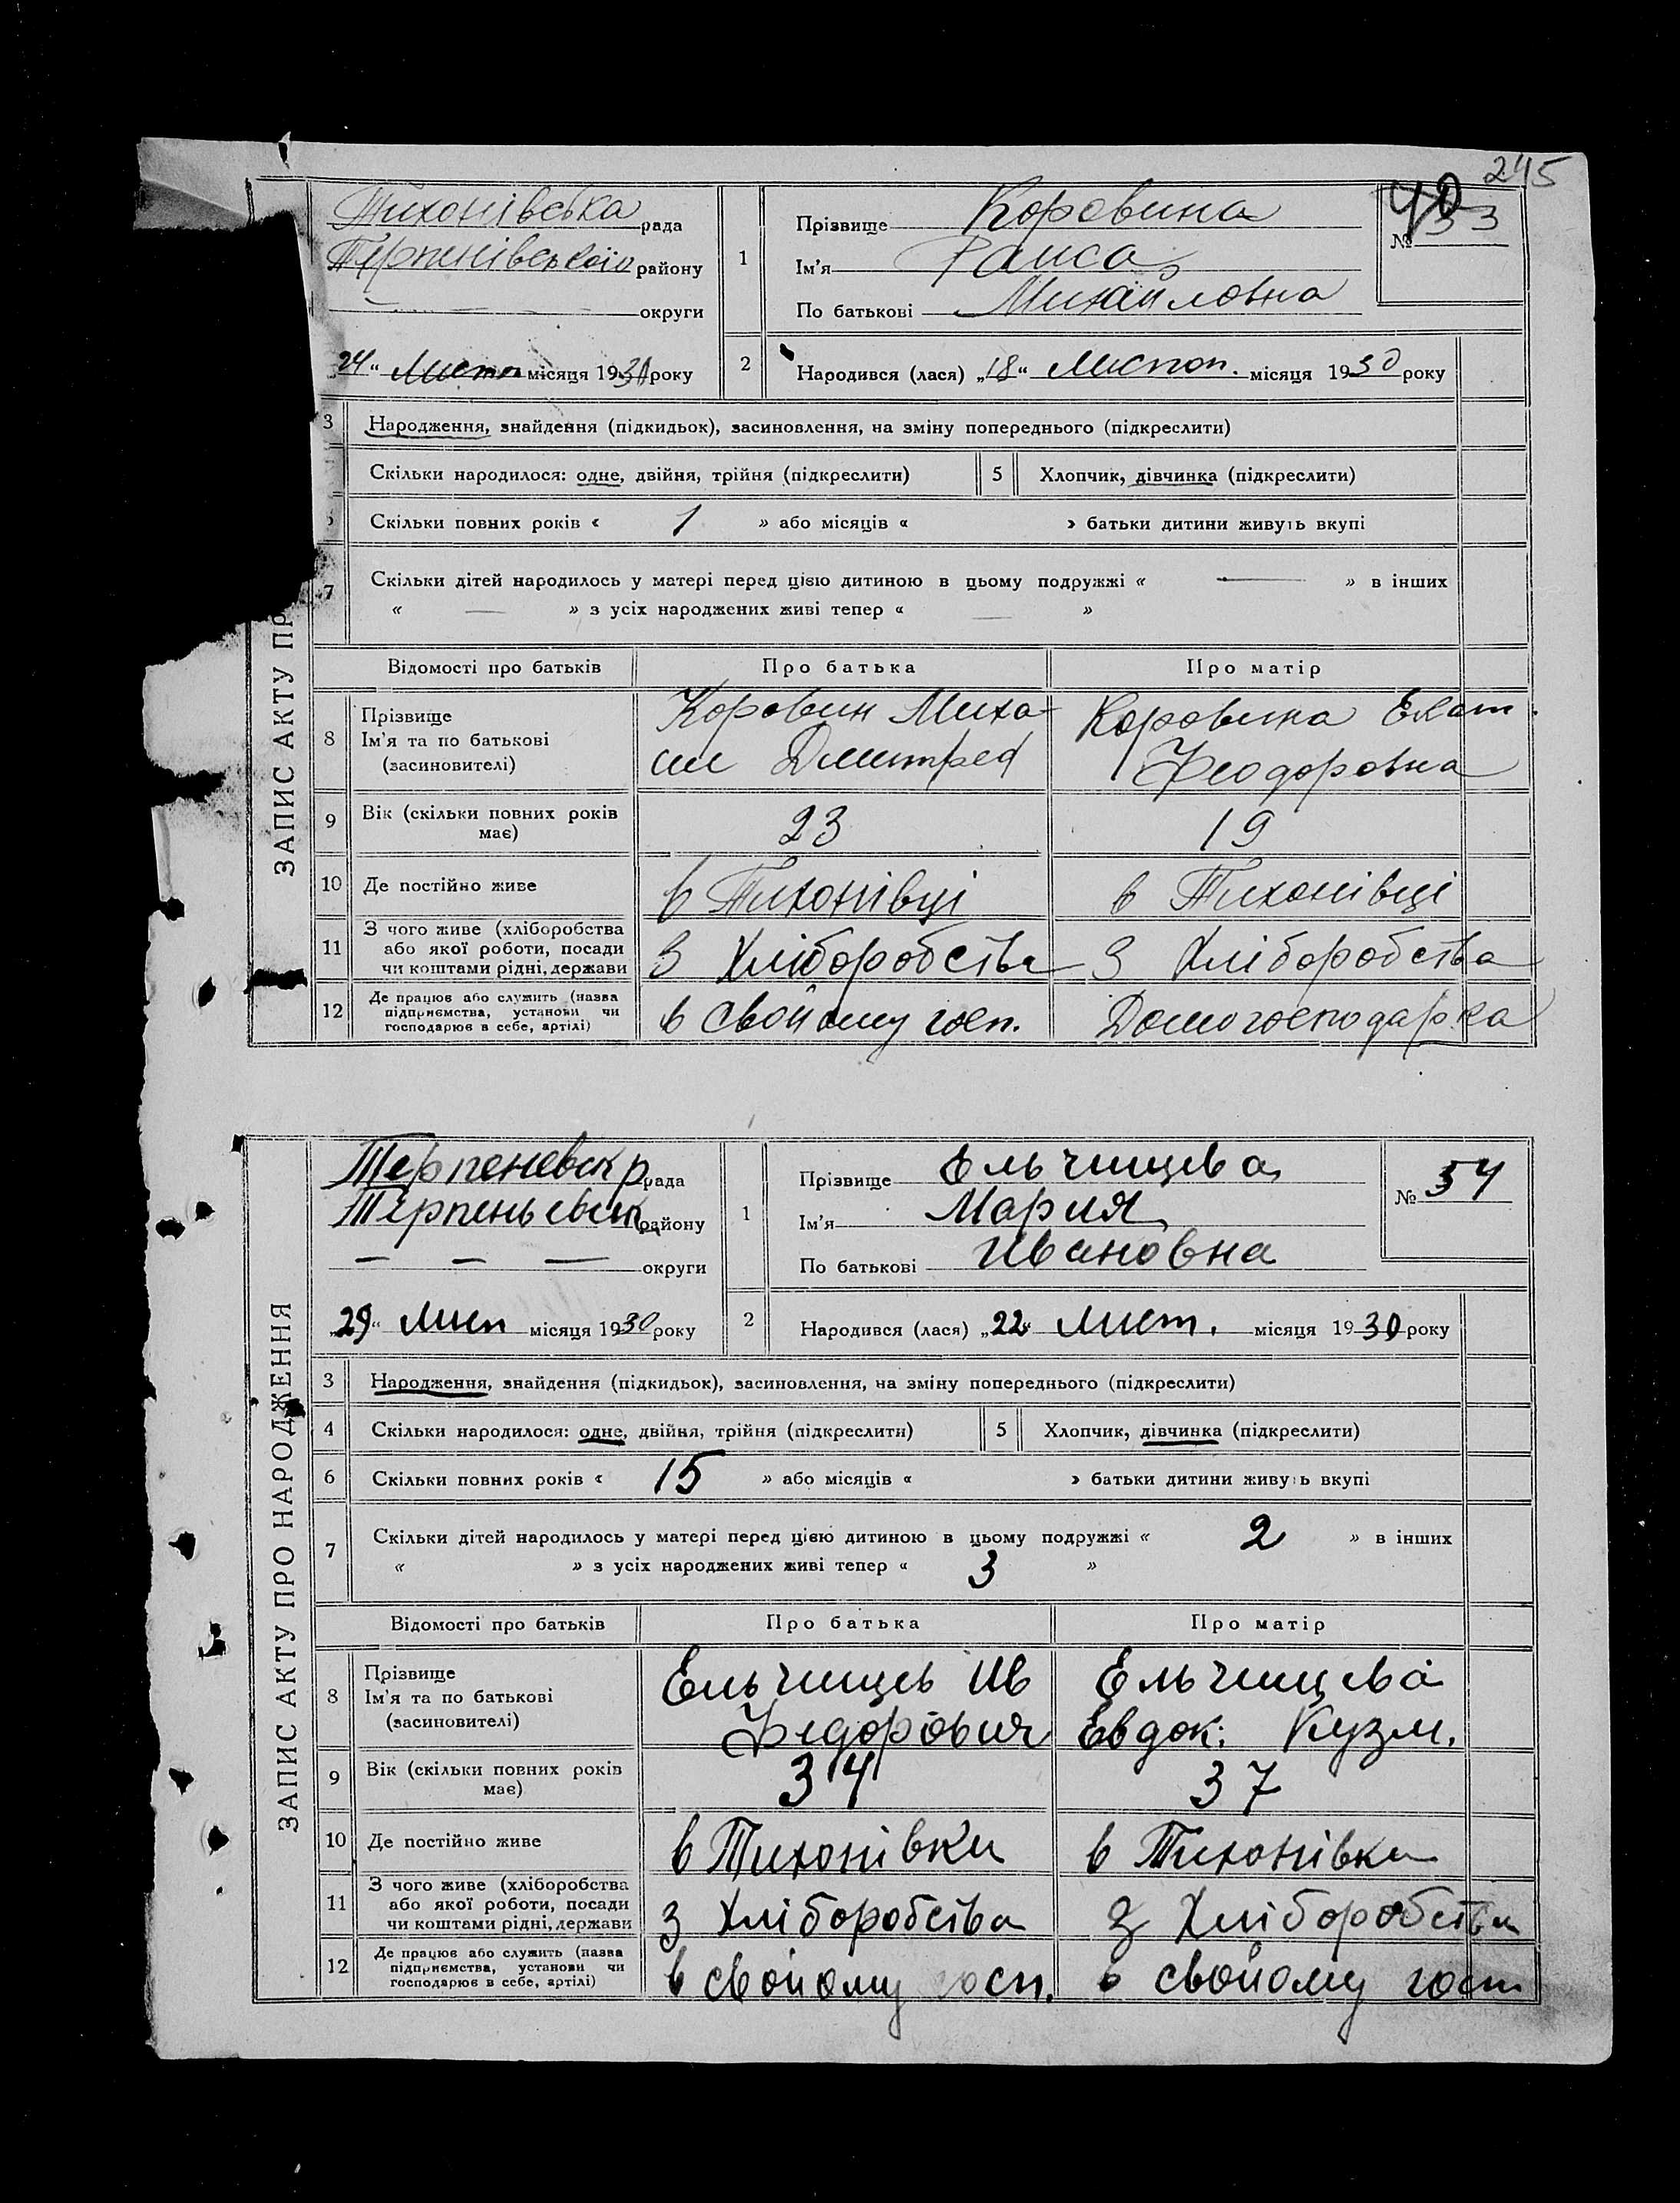 245
Тихонівська рада
Терпенівської району
округи
1
Прізвище Коровина
Ім'я Раиса
По батькові Михайловна
40
№ 53
24 " Листп місяця 1930 року
2
Народився (лася) „18" Листоп. місяця 1930 року
3 Народження, знайдення (підкидьок), засиновлення, на зміну попереднього (підкреслити)
Скільки народилося: одне, двійня, трійня (підкреслити) 5 Хлопчик, дівчинка (підкреслити)
Скільки повних років « 1 » або місяців « » батьки дитини живуть вкупі
7 Скільки дітей народилось у матері перед цією дитиною в цьому подружжі « — » в інших
« — » з усіх народжених живі тепер « — »
Відомості про батьків Про батька Про матір
8 Прізвище
Ім'я та по батькові
(засиновителі)
Коровин Миха-
ил Дмитрев
Коровина Екат.
Феодоровна
9 Вік (скільки повних років
має)
23 19
10 Де постійно живе в Тихонівці в Тихонівці
11 З чого живе (хліборобства
або якої роботи, посади
чи коштами рідні, держави
З Хліборобства З Хліборобства
12 Де працює або служить (назва
підприємства, установи чи
господарює в себе, артілі)
в свойому госп. Домогосподарка
ЗАПИС АКТУ ПР
Терпеневск р рада
Терпеньевск району
— — — округи
1
Прізвище Ельчищева
Ім'я Мария
По батькові Ивановна
№ 54
„29" Лисп місяця 1930 року
2
Народився (лася) „22" Лист. місяця 1930 року
3 Народження, знайдення (підкидьок), засиновлення, на зміну попереднього (підкреслити)
4 Скільки народилося: одне, двійня, трійня (підкреслити) 5 Хлопчик, дівчинка (підкреслити)
6 Скільки повних років « 15 » або місяців « » батьки дитини живуть вкупі
7 Скільки дітей народилось у матері перед цією дитиною в цьому подружжі « 2 » в інших
« » з усіх народжених живі тепер « 3 »
Відомості про батьків Про батька Про матір
8 Прізвище
Ім'я та по батькові
(засиновителі)
Ельчищев Ив
Федорович
Ельчищева
Евдок. Кузм.
9 Вік (скільки повних років
має)
34 37
10 Де постійно живе в Тихонівки в Тихонівки
11 З чого живе (хліборобства
або якої роботи, посади
чи коштами рідні, держави
З Хліборобства З Хліборобства
12 Де працює або служить (назва
підприємства, установи чи
господарює в себе, артілі)
в свойому госп. в свойому госп
ЗАПИС АКТУ ПРО НАРОДЖЕННЯ